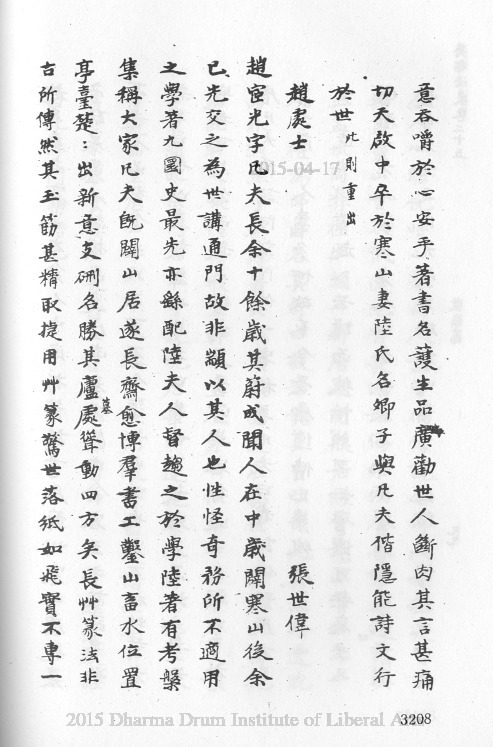 意吞嚼於心安乎著書名護生品廣勸世人斷肉其言甚痛
切天啟中卒於寒山妻陸氏名卿子與凡夫偕隱能詩文行
於世此則重出
趙處士
張世偉
趙宧光字凡夫長余十餘歲其蔚成聞人在中歲闢寒山後余
已先交之為世講通門故非顓以其人也性怪奇務所不適用
之學著九圜史最先亦繇配陸夫人督趨之於學陸著有考槃
集稱大家凡夫既闢山居遂長齋愈博羣書工鑿山畜水位置
亭臺楚：出新意支硎名勝其廬墓處聳動四方矣長艸篆法非
古所傳然其玉筯甚精取捷用艸篆驚世落紙如飛實不專一
2015-04-17
2015 Dharma Drum Institute of Liberal A
3208